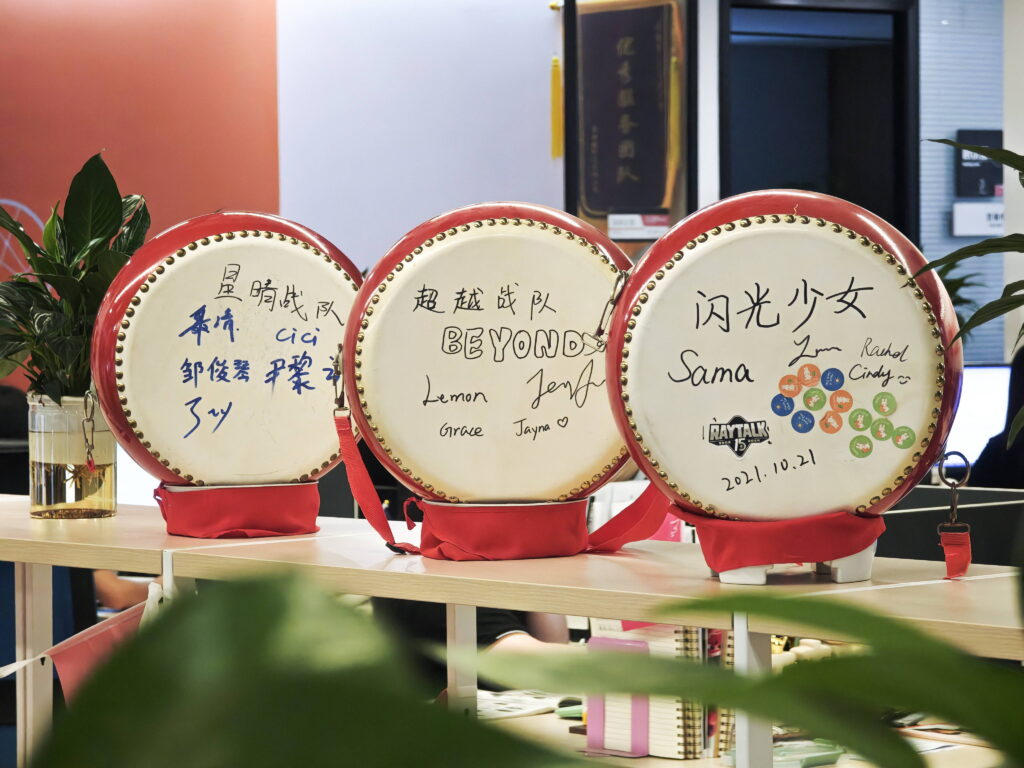 优秀服务团队
星晴战队
CiCi
邹俊琴 尹黎
Joy
超越战队
BEYOND
Lemon
Grace Jayna♡
闪光少女
Sama
Rachol
Cindy
RAYTALK
15
2021.10.21